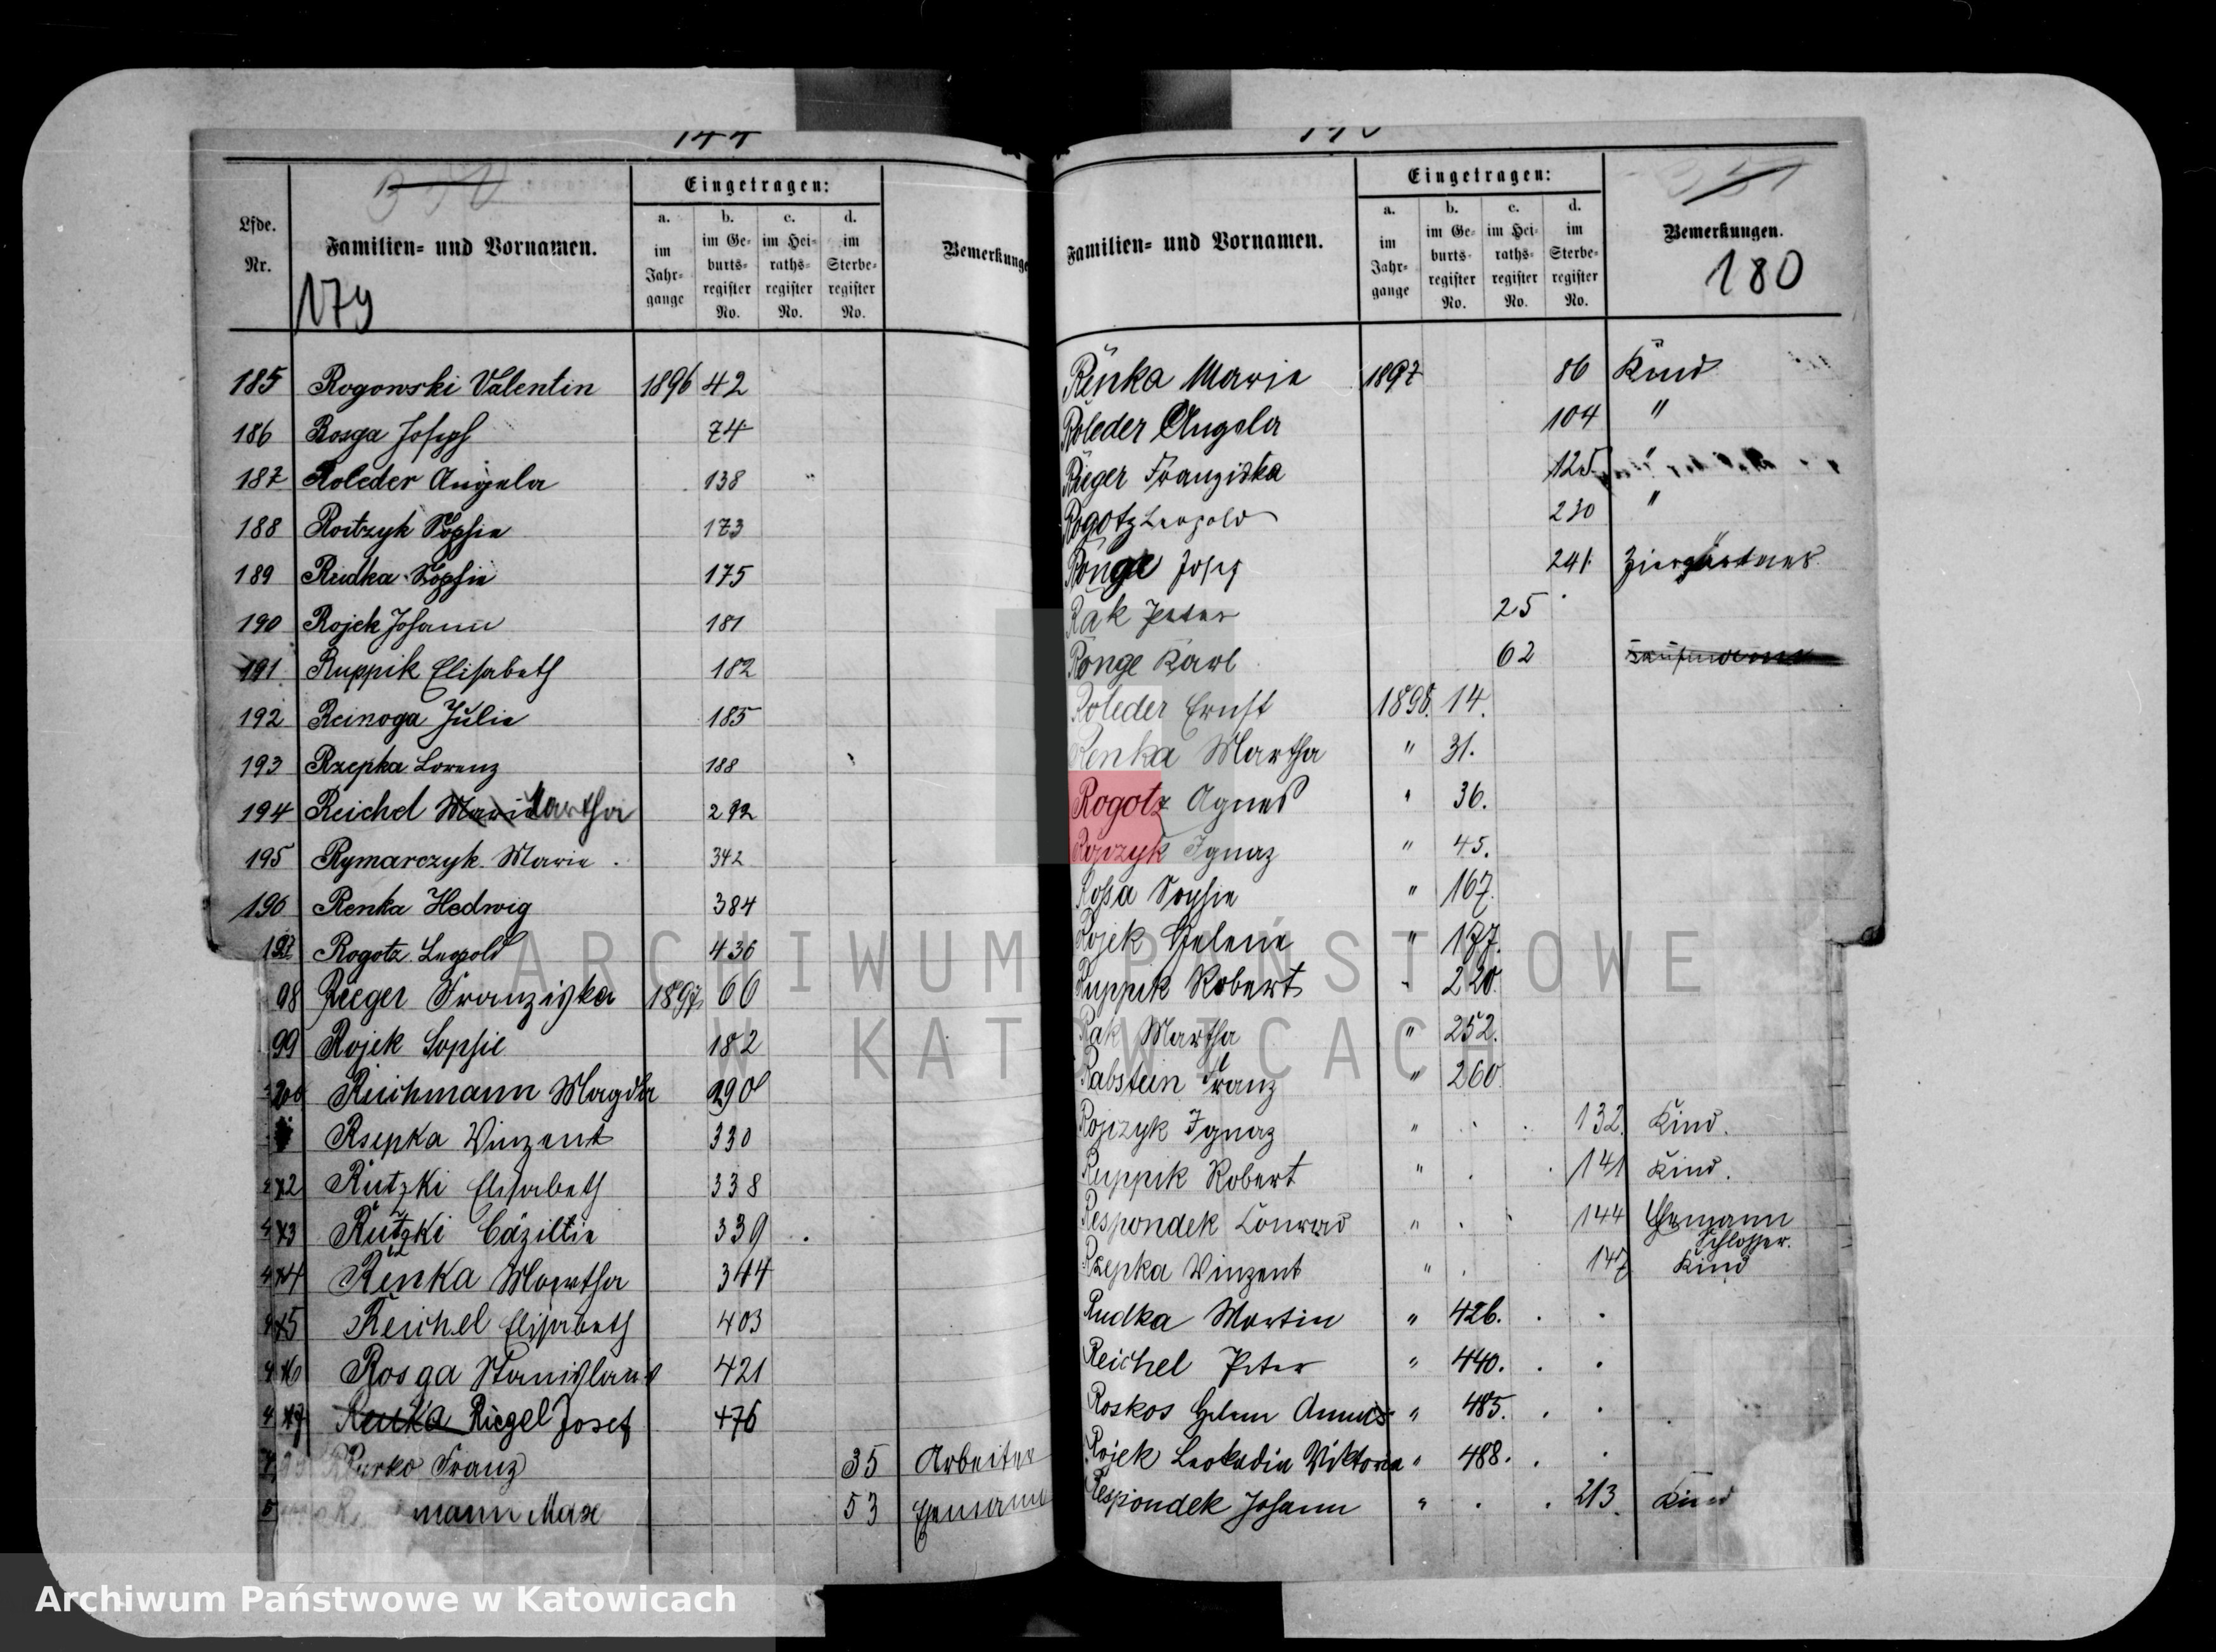 Lfde. Nr.
Familien- und Vornamen.
Eingetragen:
a. im Jahrgange
b. im Geburtsregister No.
c. im Heirathsregister No.
d. im Sterberegister No.
Bemerkunge
179
185 Rogowski Valentin 1896 42
186 Rosga Joseph 74
187 Roleder Angela 138
188 Roitzyk Sophie 173
189 Rudka Sophie 175
190 Rojek Johann 181
191 Ruppik Elisabeth 182
192 Reinoga Julie 185
193 Rzepka Lorenz 188
194 Reichel Maria Martha 292
195 Rymarczyk Marie 342
196 Renka Hedwig 384
197 Rogotz Leopold 436
98 Rieger Franziska 1897 66
99 Rojek Sophie 182
200 Reichmann Magda 290
Rsepka Vinzent 330
Rutzki Elisabeth 338
Rutzki Cäzilie 339
Renka Martha 344
Reichel Elisabeth 403
Rosga Stanislaus 421
Renka Riegel Josef 476
Franz 35 Arbeiter
mann Max 53 Ehemann
Familien- und Vornamen.
Eingetragen:
a. im Jahrgange
b. im Geburtsregister No.
c. im Heirathsregister No.
d. im Sterberegister No.
Bemerkungen.
180
Renka Marie 1897 86 Kind
Roleder Angela 104 "
Rieger Franziska 125 "
Rogotz Leopold 230 "
Ronge Josef 241 Ziergärtner
Rak Peter 25
Ronge Karl 62
Roleder Ernst 1898. 14.
Renka Martha " 31.
Rogotz Agnes " 36.
Rojczyk Ignaz " 45.
Rossa Sophie " 167.
Rojek Helene " 177.
Ruppik Robert " 220.
Rak Martha " 252.
Rabstein Franz " 260.
Rojczyk Ignaz " 132. Kind.
Ruppik Robert " 141 Kind.
Respondek Conrad " 144 Ehemann Schlosser.
Rzepka Vinzent " 147 Kind
Rudka Martin " 426.
Reichel Peter " 440.
Roskos Helene Anna " 485.
Rojek Leokadia Viktoria " 488.
Respondek Johann " 213. Kind
ARCHIWUM PAŃSTWOWE
W KATOWICACH
Archiwum Państwowe w Katowicach